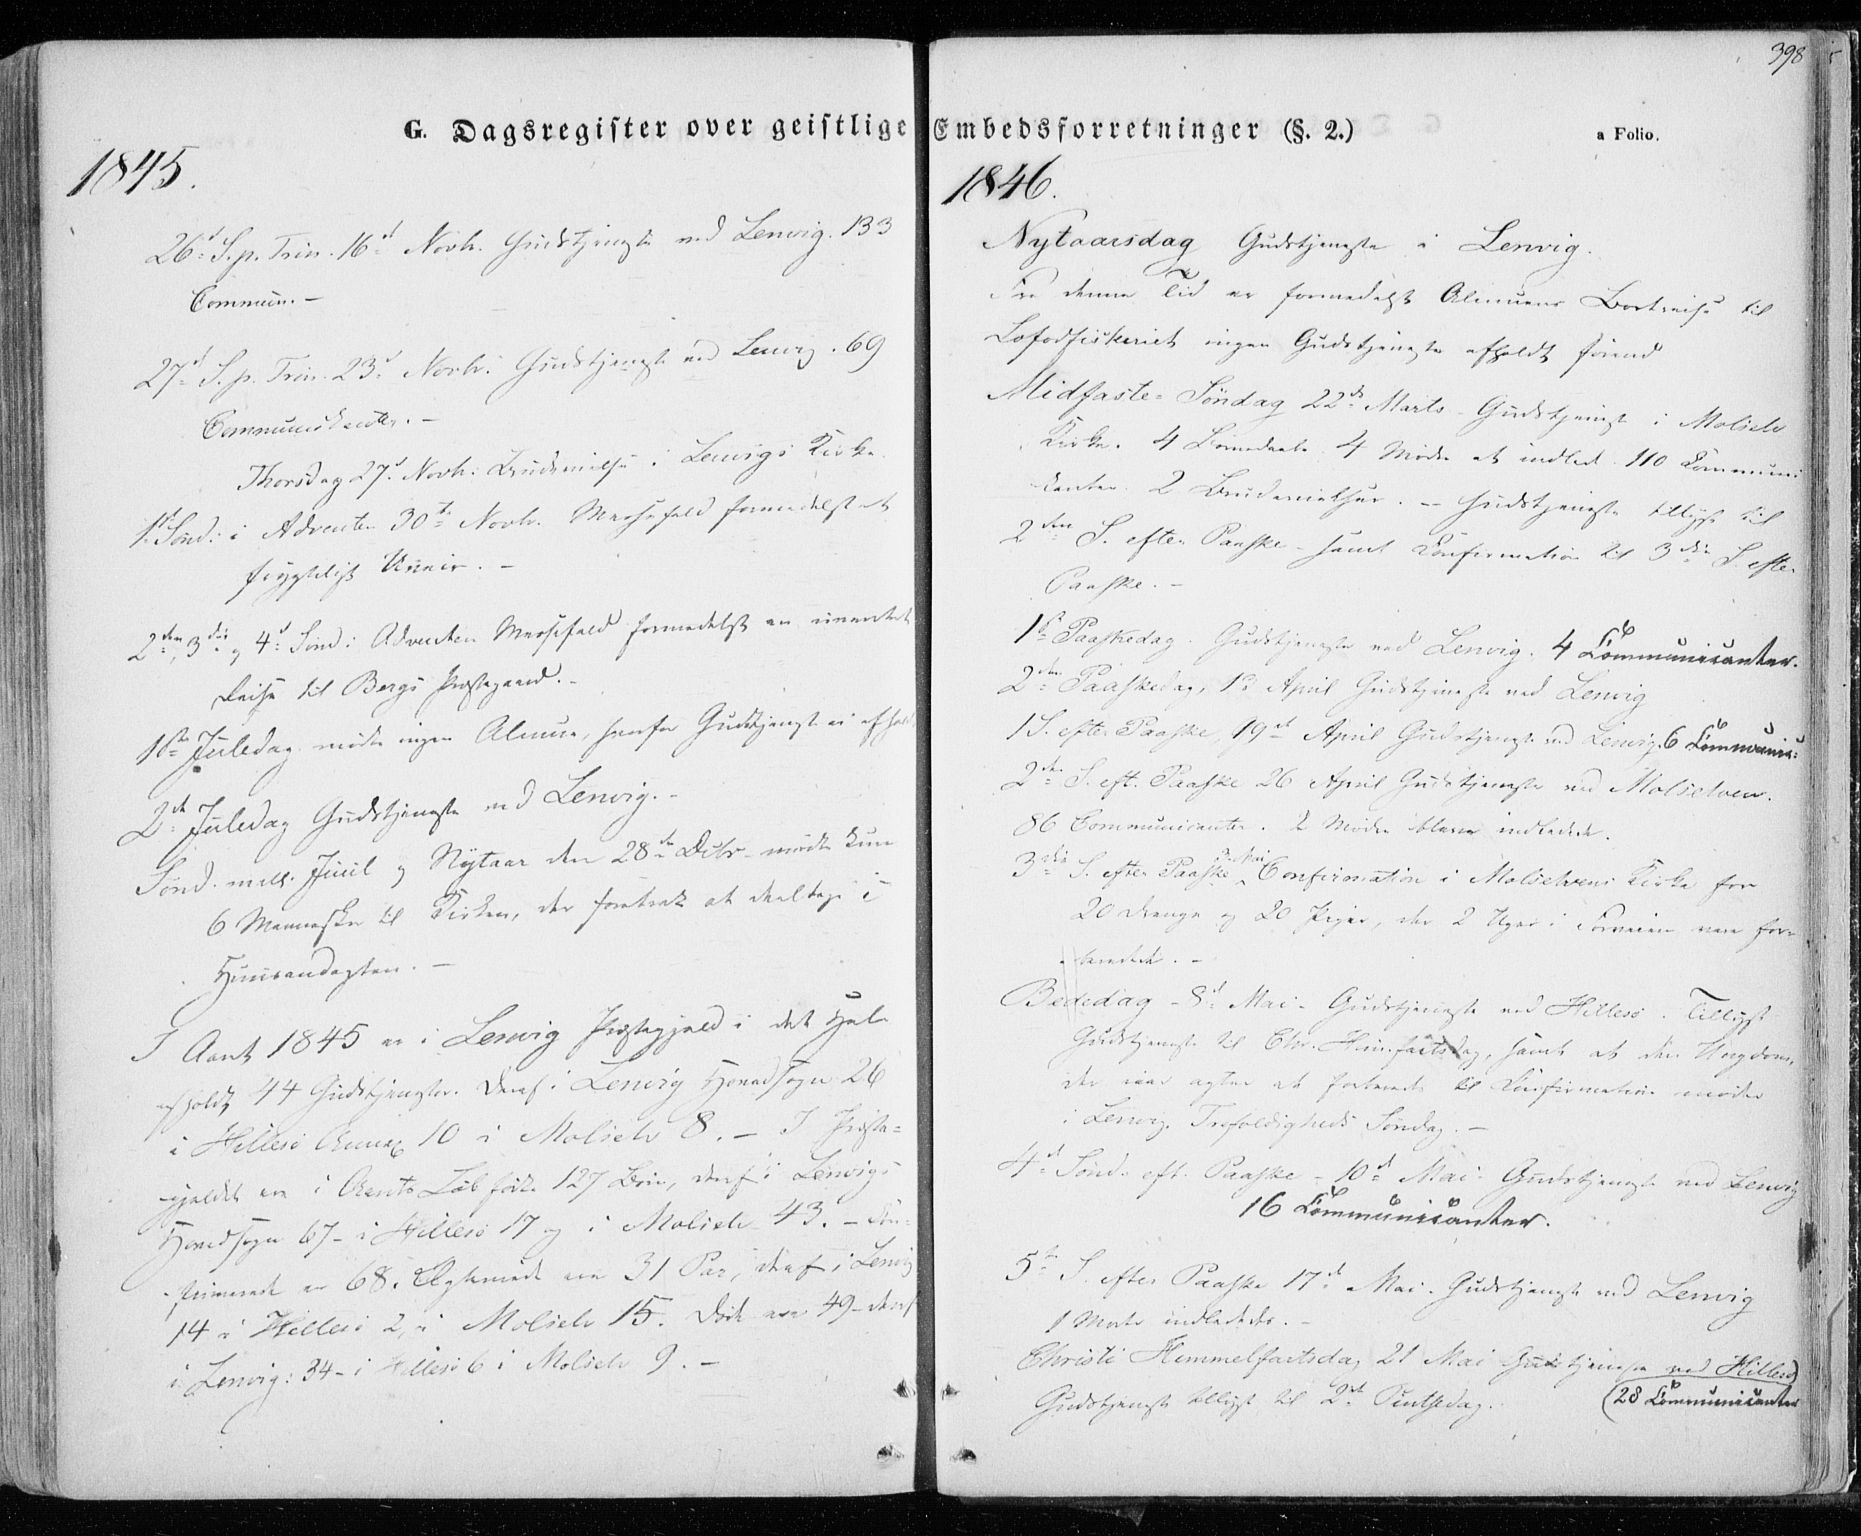 398
G. Dagsregister over geistlige Embedsforretninger (§. 2.)
a Folio.
1845.
26d S. p. Trin. 16d Novb. Gudstjeneste ved Lenvig. 133
Commun. –
27d S. p. Trin. 23d Novb. Gudstjeneste ved Lenvig. 69
Communikanter. –
Thorsdag 27d Novb: Brudevielse i Lenvigs Kirke.
1ste Sönd: i Adventen 30te Novb. Messefald formedelst et
frygteligt Uveir. –
2den, 3die og 4d Sönd: i Adventen Messefald formedelst en
Reise til Bergs Præstegaard. –
1ste Juledag mödte ingen Almue, hvorfor Gudstjeneste ei afholdt
2de Juledag Gudstjeneste ved Lenvig. –
Sönd. mell. Juul og Nytaar den 28de Decbr mödte kun
6 Mennesker til Kirken, der foretrak at deeltage i
Huusandagten. –
I Aaret 1845 er i Lenvig Præstegjeld i det Hele
afholdt 44 Gudstjenester. Deraf i Lenvig Hovedsogn 26
i Hillesö Annex 10 i Molselv 8. – I Præste-
gjeldet ere i Aarets Löb födte 127 Börn, deraf i Lenvigs
Hovedsogn 67 – i Hillesö 17 og i Molselv 43. – Con-
firmerede er 68. Ægteviede ere 31 Par, deraf i Lenvig
14 i Hillesö 2, i Molselv 15. Döde ere 49 – deraf
i Lenvig: 34 – i Hillesö 6 i Molselv 9. –
1846.
Nytaarsdag Gudstjeneste i Lenvig.
Fra denne Tid er formedelst Almuens Bortreise til
Lofodfiskeriet ingen Gudstjeneste afholdt förend
Midfaste-Söndag 22de Marts – Gudstjeneste i Molselv
Kirke. 4 Barnedaab. 4 Mödre at indlede. 110 Communi
kanter. 2 Brudevielser. – Gudstjeneste tillyst til
2den S. efter Paaske – samt Confirmation til 3die S. efter
Paaske. –
1ste Paaskedag. Gudstjeneste ved Lenvig. 4 Communicanter.
2den Paaskedag, 13 April Gudstjeneste ved Lenvig
1 S. efter Paaske, 19de April Gudstjeneste ved Lenvig. 6 Communica:
2den S. eft. Paaske 26 April Gudstjeneste ved Molselven.
86 Communicanter. 2 Mödre bleve indledede.
3die S. efter Paaske 3 Mai Confirmation i Molselvens Kirke for
20 Drenge og 20 Piger, der 2 Uger i Forveien vare for-
beredede. –
Bededag – 8d Mai – Gudstjeneste ved Hillesö. Tillyst
Gudstjeneste til Chr. Himmelfartsdag, samt at den Ungdom,
der iaar agter at forberedes til Confirmation möder
i Lenvig Trefoldigheds Söndag. –
4d Sönd. eft. Paaske – 10d Mai – Gudstjeneste ved Lenvig
16 Communicanter.
5te S. efter Paaske 17d Mai. Gudstjeneste ved Lenvig
1 Moder indlededes. –
Christi Himmelfartsdag 21 Mai Gudstjeneste ved Hillesö
(28 Communicanter
Gudstjeneste tillyst til 2den Pintsedag.